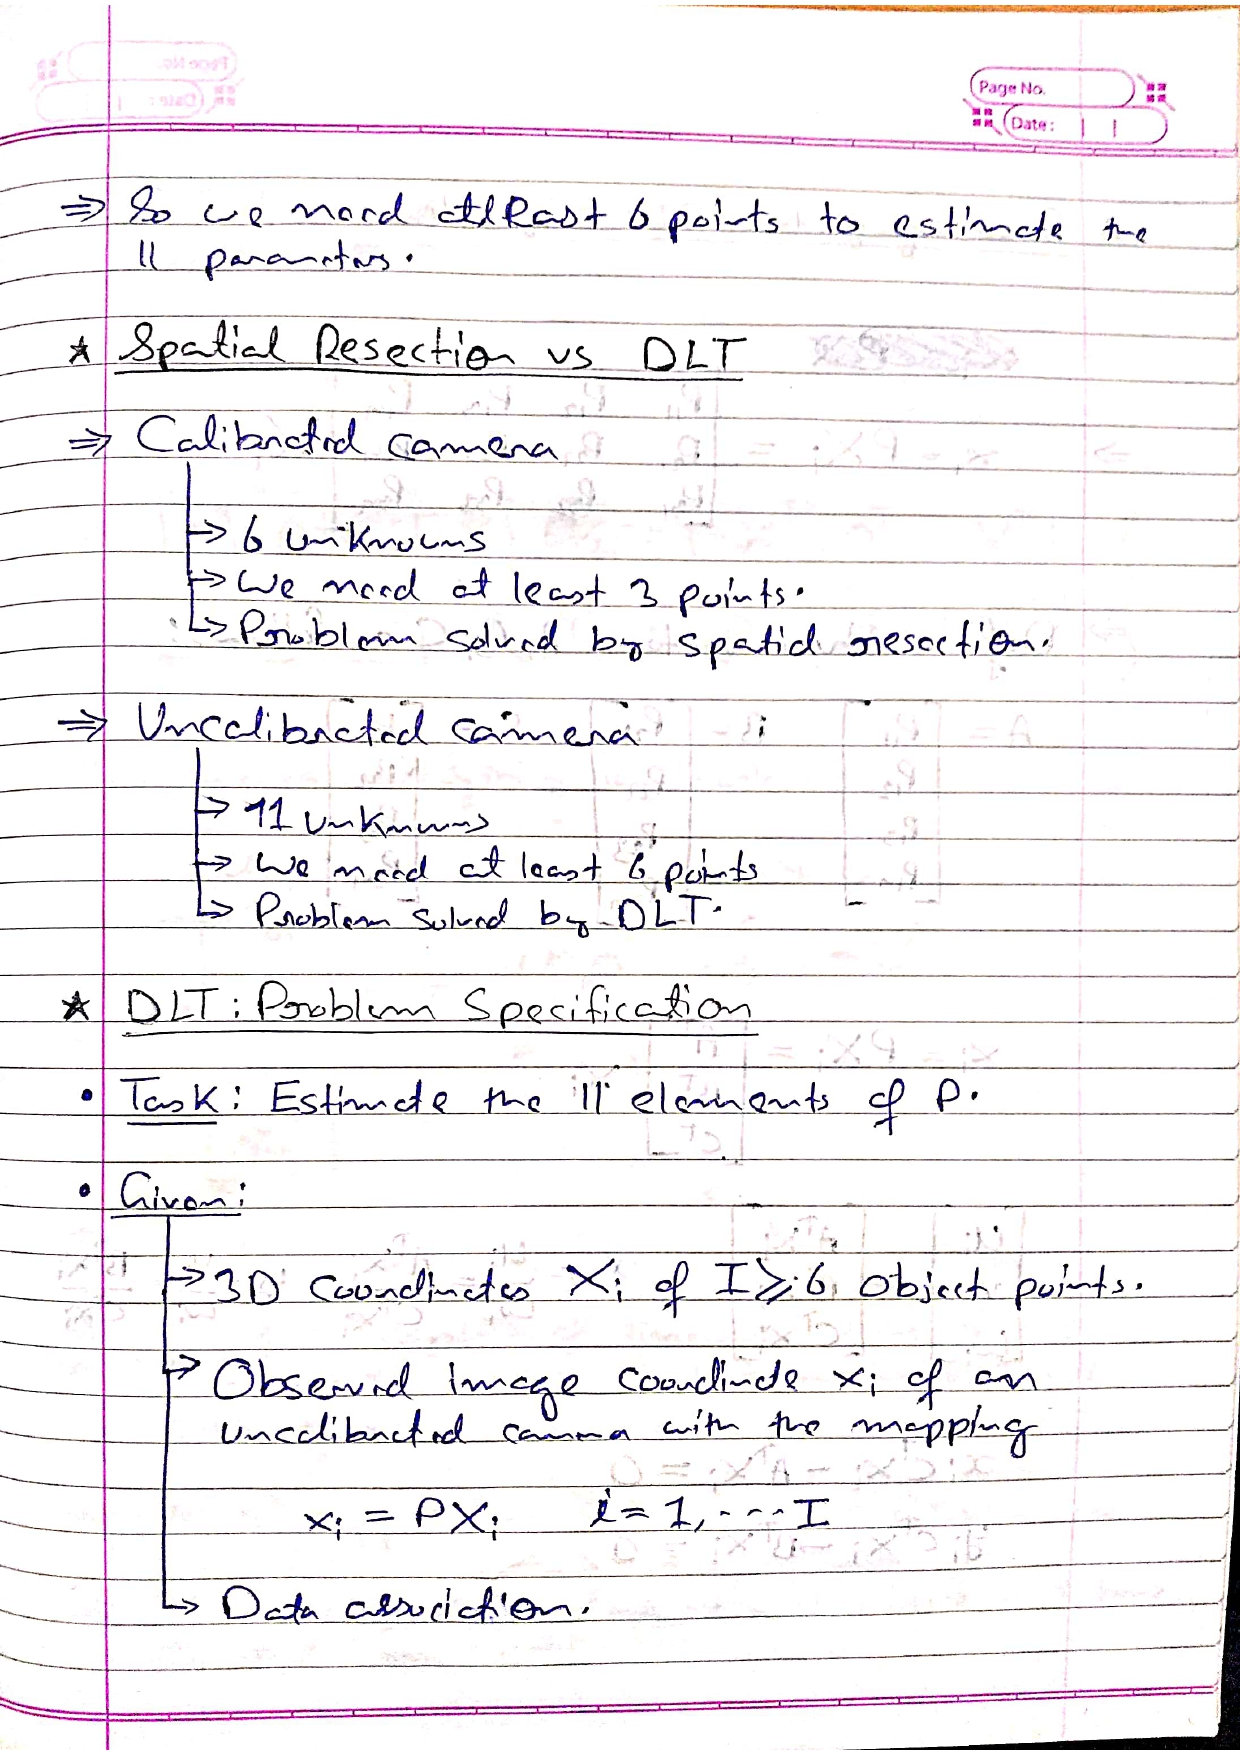 Page No.
Date:
⇒ So we need atleast 6 points to estimate the
11 parameters.
★ Spatial Resection vs DLT
⇒ Calibrated camera
→ 6 unknowns
→ We need at least 3 points.
→ Problem solved by spatial resection.
⇒ Uncalibrated camera
→ 11 unknowns
→ We need at least 6 points
→ Problem solved by DLT.
★ DLT: Problem Specification
• Task: Estimate the 11 elements of P.
• Given:
→ 3D Coordinates Xi of I ≥ 6 object points.
→ Observed image coordinate xi of an
uncalibrated camera with the mapping
xi = PXi i = 1, ---- I
→ Data association.